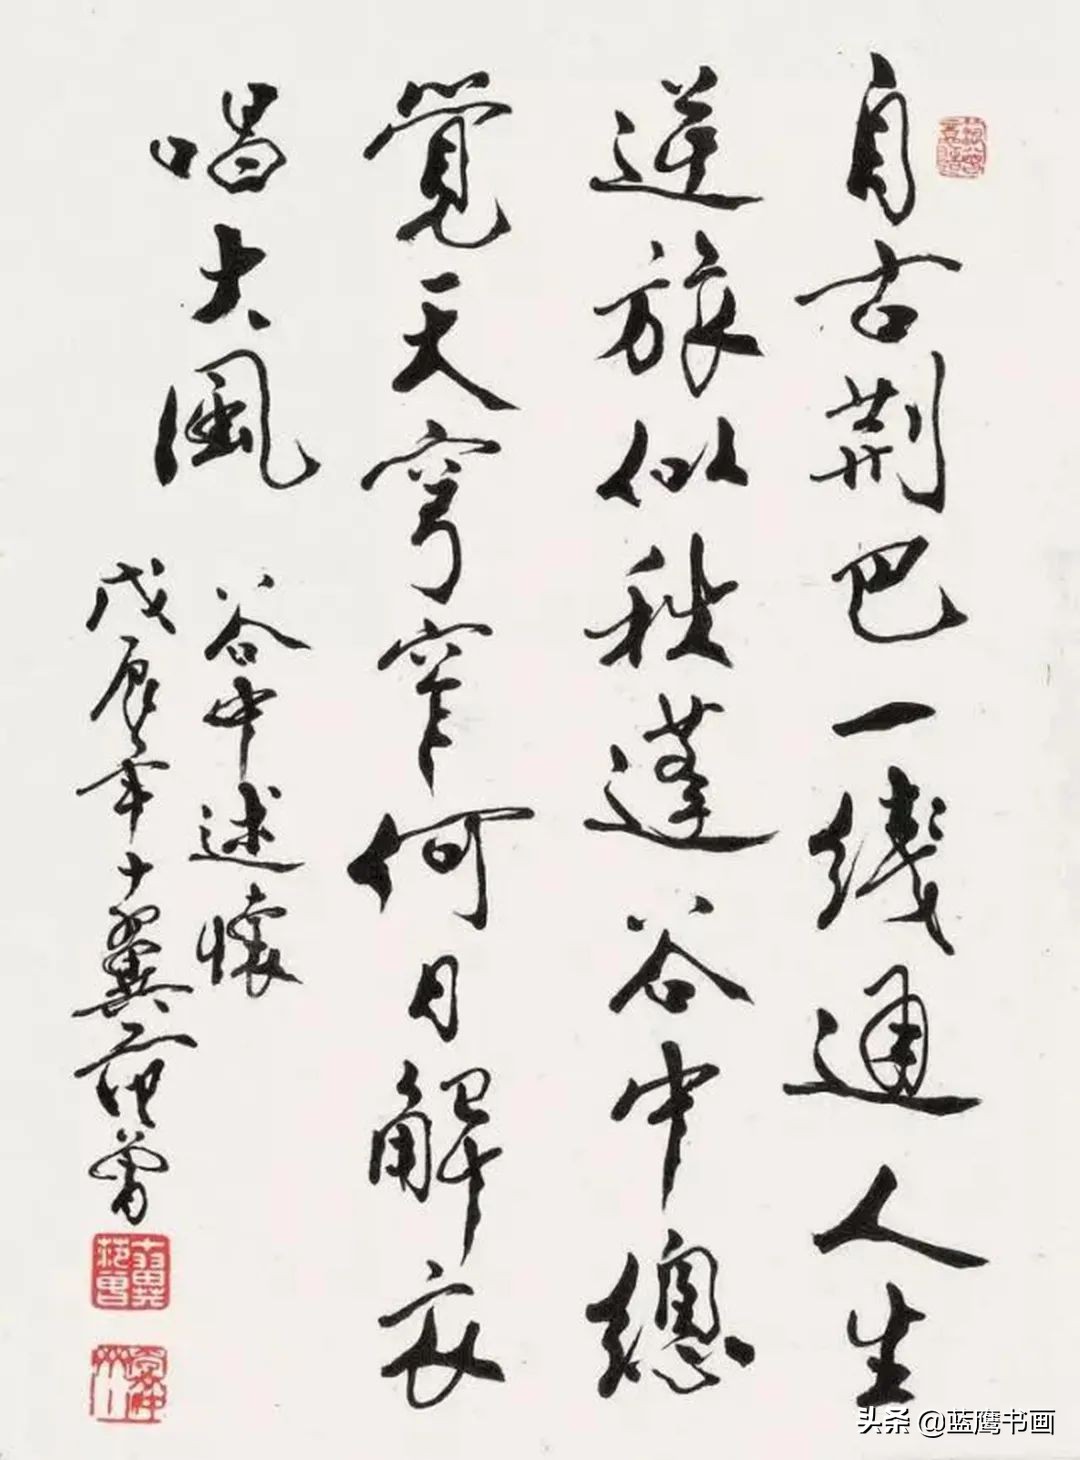 自古荆巴一綫通人生
逆旅似秋蓬谷中總
覺天穹窄何日解衣
唱大風
谷中述懷
戊辰年十翼范曾
十翼范曾
头条 @蓝鹰书画